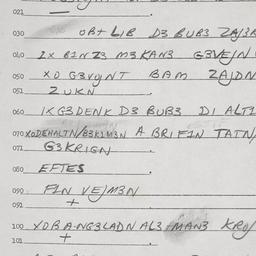 021
030 OBt LIB D3 BUB3 ZAJ3R
040 IX BINZ3 M3 KAN3 G3VEJN
050 XO G3VYNT BAM ZAJDN
051 ZUKN
060 IX G3DENK D3 BUB3 DI ALTI
070 XODEHALTN/B3KIM3N A BRIFIN TATN
071 G3KRIGN
080 EFTES
090 FIN VEJM3N
091 +
100 XOB A-NG3LADN AL3 MAN3 KROJ
101 +